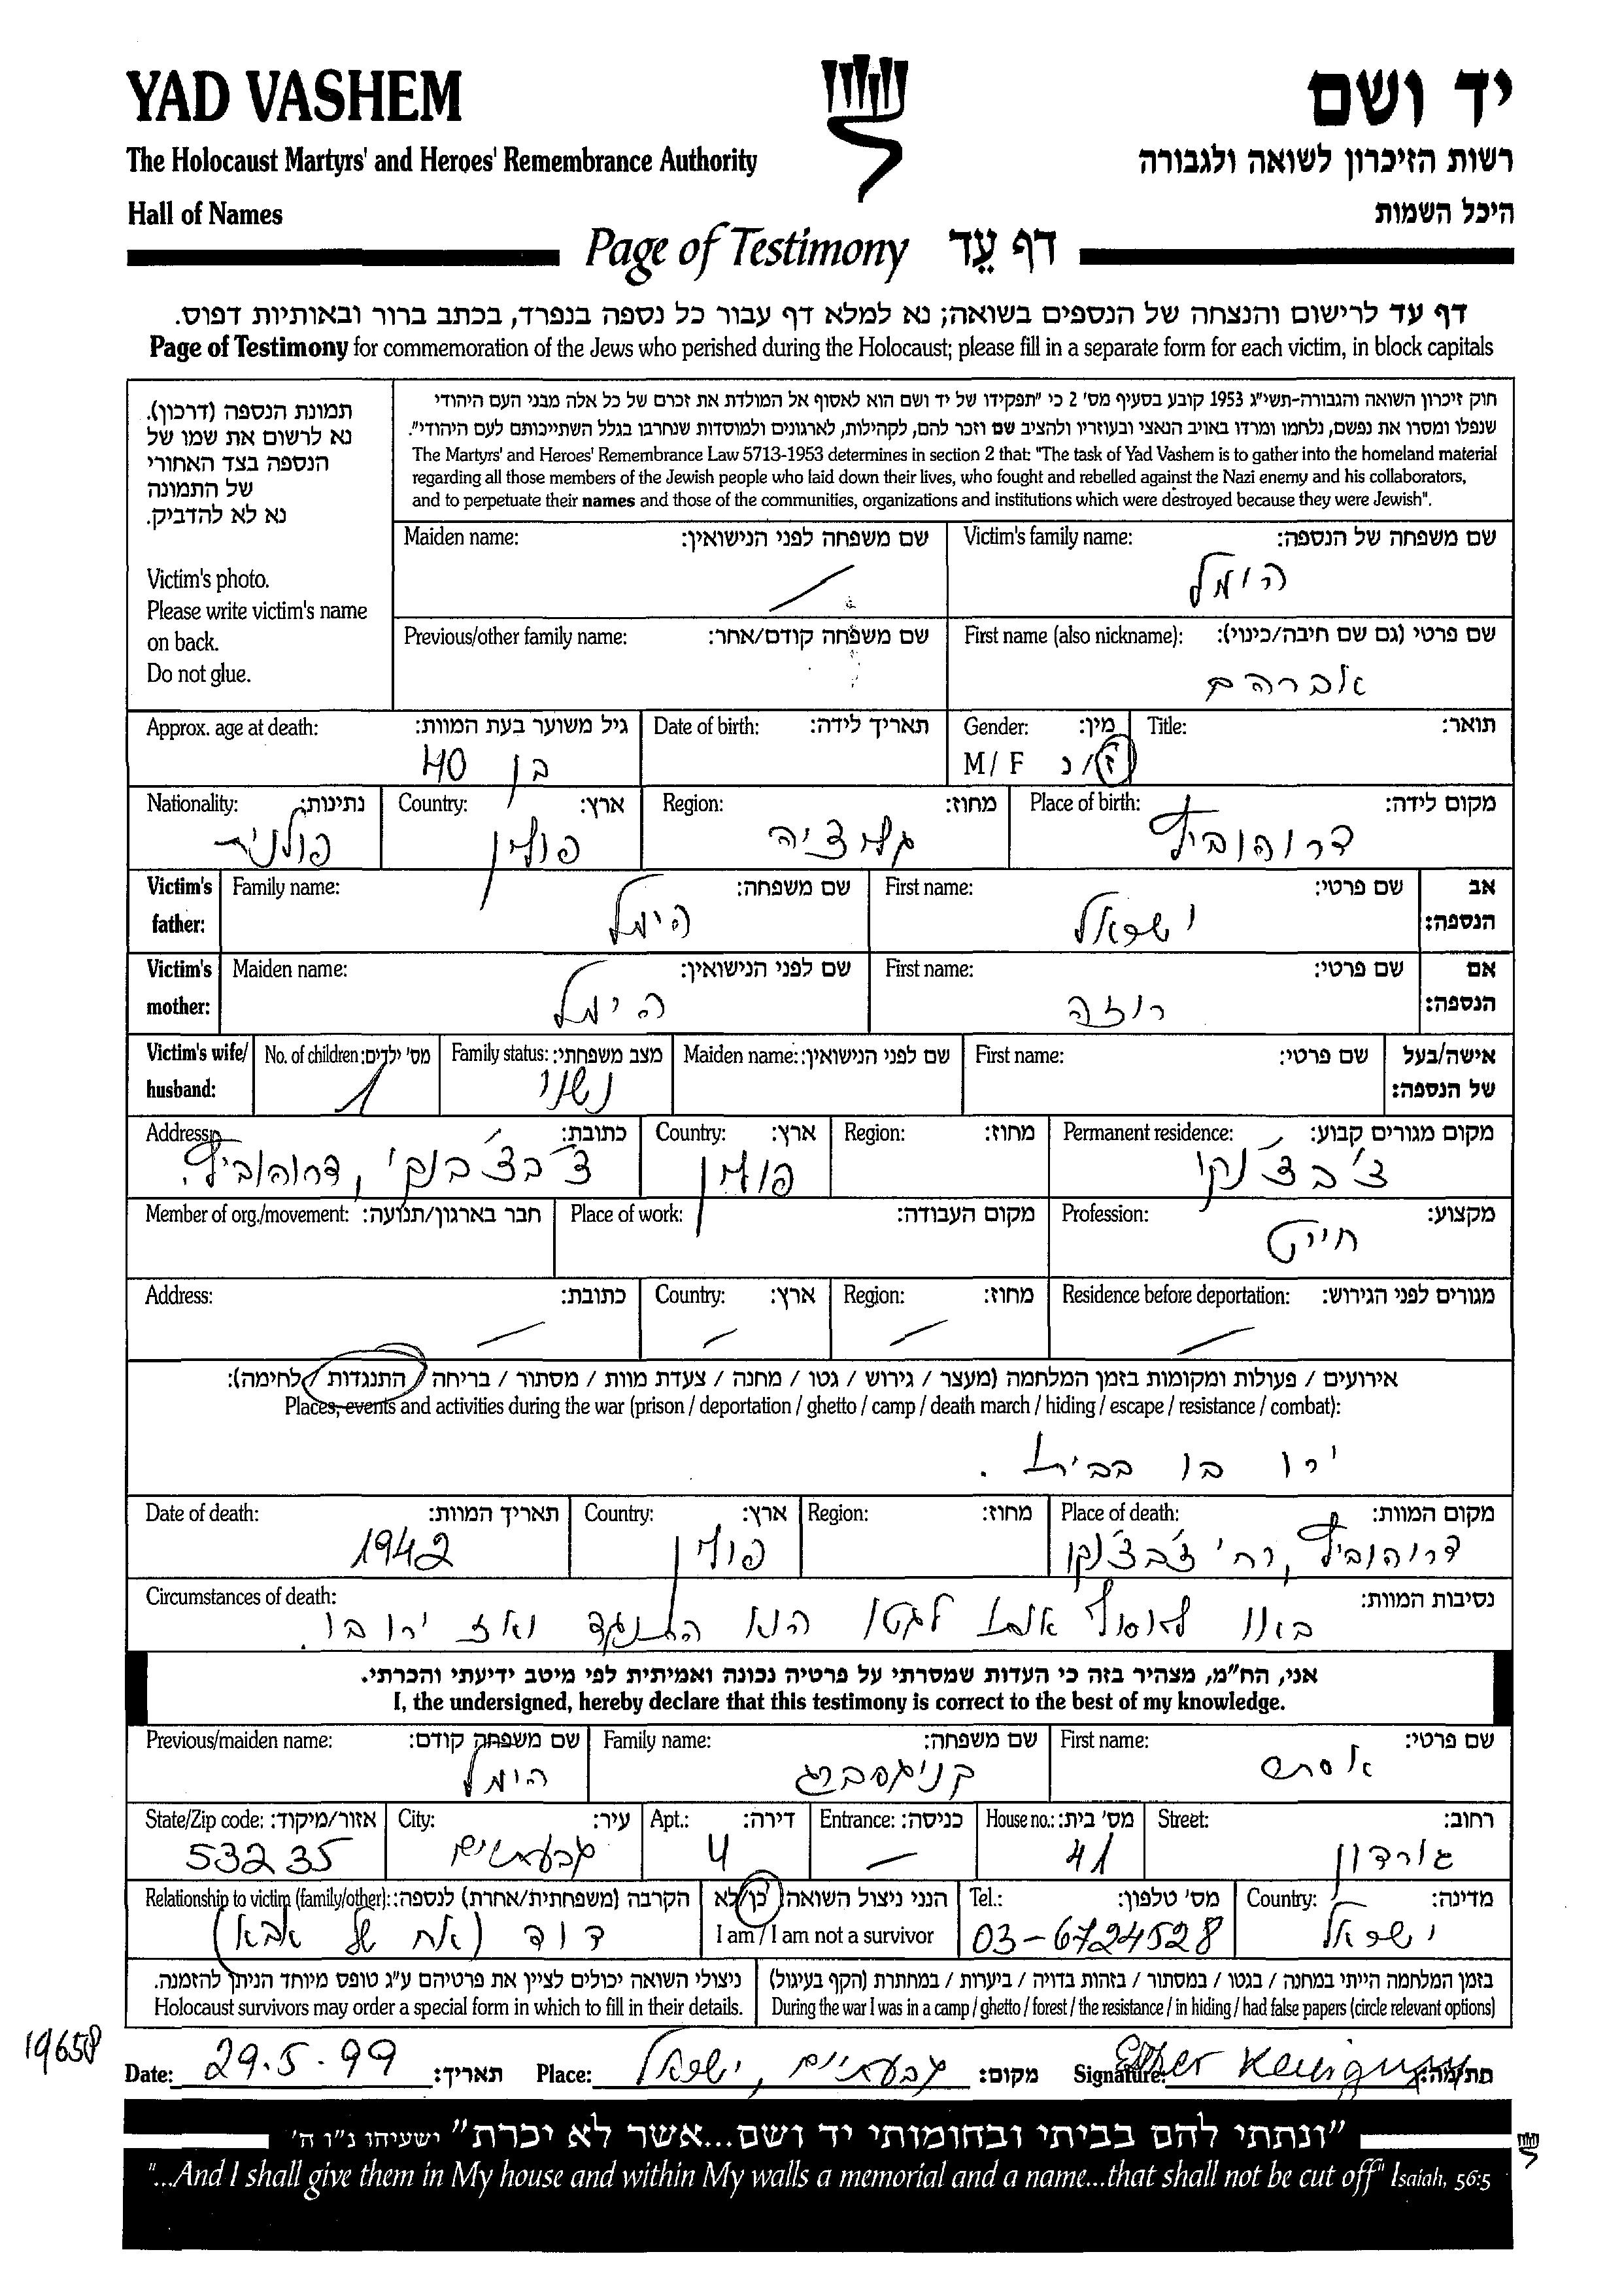 YAD VASHEM
יד ושם
The Holocaust Martyrs' and Heroes' Remembrance Authority
רשות הזיכרון לשואה ולגבורה
Hall of Names
היכל השמות
Page of Testimony דף עֵד
דף עד לרישום והנצחה של הנספים בשואה; נא למלא דף עבור כל נספה בנפרד, בכתב ברור ובאותיות דפוס.
Page of Testimony for commemoration of the Jews who perished during the Holocaust; please fill in a separate form for each victim, in block capitals
תמונת הנספה (דרכון).
נא לרשום את שמו של
הנספה בצד האחורי
של התמונה
נא לא להדביק.
Victim's photo.
Please write victim's name
on back.
Do not glue.
חוק זיכרון השואה והגבורה-תשי"ג 1953 קובע בסעיף מס' 2 כי "תפקידו של יד ושם הוא לאסוף אל המולדת את זכרם של כל אלה מבני העם היהודי
שנפלו ומסרו את נפשם, נלחמו ומרדו באויב הנאצי ובעוזריו ולהציב שם וזכר להם, לקהילות, לארגונים ולמוסדות שנחרבו בגלל השתייכותם לעם היהודי".
The Martyrs' and Heroes' Remembrance Law 5713-1953 determines in section 2 that: "The task of Yad Vashem is to gather into the homeland material
regarding all those members of the Jewish people who laid down their lives, who fought and rebelled against the Nazi enemy and his collaborators,
and to perpetuate their names and those of the communities, organizations and institutions which were destroyed because they were Jewish".
Victim's family name: שם משפחה של הנספה:
הימל
Maiden name: שם משפחה לפני הנישואין:
First name (also nickname): שם פרטי (גם שם חיבה/כינוי):
אברהם
Previous/other family name: שם משפחה קודם/אחר:
Title: תואר:
Gender: מין:
M/ F ז/נ
Date of birth: תאריך לידה:
Approx. age at death: גיל משוער בעת המוות:
בן 40
Place of birth: מקום לידה:
דרוהוביץ'
Region: מחוז:
גליציה
Country: ארץ:
פולין
Nationality: נתינות:
פולנית
Victim's father: אב הנספה:
First name: שם פרטי:
ישראל
Family name: שם משפחה:
הימל
Victim's mother: אם הנספה:
First name: שם פרטי:
רוזה
Maiden name: שם לפני הנישואין:
הימל
Victim's wife/ husband: אישה/בעל של הנספה:
First name: שם פרטי:
Maiden name: שם לפני הנישואין:
Family status: מצב משפחתי:
נשוי
No. of children: מס' ילדים:
1
Permanent residence: מקום מגורים קבוע:
Region: מחוז:
Country: ארץ:
פולין
Address: כתובת:
דרוהוביץ'.
Profession: מקצוע:
חייט
Place of work: מקום העבודה:
Member of org./movement: חבר בארגון/תנועה:
Residence before deportation: מגורים לפני הגירוש:
Region: מחוז:
Country: ארץ:
Address: כתובת:
אירועים / פעולות ומקומות בזמן המלחמה (מעצר / גירוש / גטו / מחנה / צעדת מוות / מסתור / בריחה / התנגדות / לחימה):
Places, events and activities during the war (prison / deportation / ghetto / camp / death march / hiding / escape / resistance / combat):
ירו בו בבית.
Place of death: מקום המוות:
דרוהוביץ', רח'
Region: מחוז:
Country: ארץ:
פולין
Date of death: תאריך המוות:
1942
Circumstances of death: נסיבות המוות:
באו לאסוף אותו לגטו הוא התנגד ואז ירו בו.
אני, הח"מ, מצהיר בזה כי העדות שמסרתי על פרטיה נכונה ואמיתית לפי מיטב ידיעתי והכרתי.
I, the undersigned, hereby declare that this testimony is correct to the best of my knowledge.
First name: שם פרטי:
אסתר
Family name: שם משפחה:
קניגסברג
Previous/maiden name: שם משפחה קודם:
הימל
Street: רחוב:
גורדון
House no.: מס' בית:
41
Entrance: כניסה:
Apt.: דירה:
4
City: עיר:
גבעתיים
State/Zip code: אזור/מיקוד:
53235
Country: מדינה:
ישראל
Tel.: מס' טלפון:
03-6724528
הנני ניצול השואה: כן/לא
I am / I am not a survivor
Relationship to victim (family/other): הקרבה (משפחתית/אחרת) לנספה:
דוד (אח של אבא)
בזמן המלחמה הייתי במחנה / בגטו / במסתור / בזהות בדויה / ביערות / במחתרת (הקף בעיגול)
During the war I was in a camp / ghetto / forest / the resistance / in hiding / had false papers (circle relevant options)
ניצולי השואה יכולים לציין את פרטיהם ע"ג טופס מיוחד הניתן להזמנה.
Holocaust survivors may order a special form in which to fill in their details.
19658
Date: 29.5.99 תאריך:
Place: גבעתיים, ישראל מקום:
Signature: Esther חתימה:
"ונתתי להם בביתי ובחומותי יד ושם...אשר לא יכרת" ישעיהו נ"ו ה'
"...And I shall give them in My house and within My walls a memorial and a name...that shall not be cut off" Isaiah, 56:5